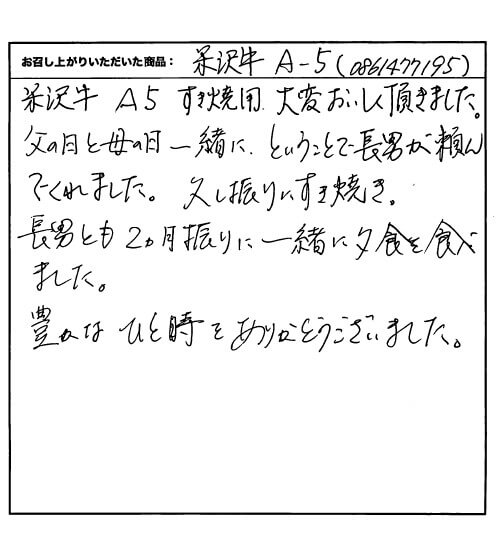 お召し上がりいただいた商品： 米沢牛 A-5 (0861477195)
米沢牛 A5 すき焼用 大変おいしく頂きました。
父の日と母の日一緒に、ということで長男が頼ん
でくれました。久し振りにすき焼き。
長男とも2ヵ月振りに一緒に夕食を食べ
ました。
豊かなひと時をありがとうございました。